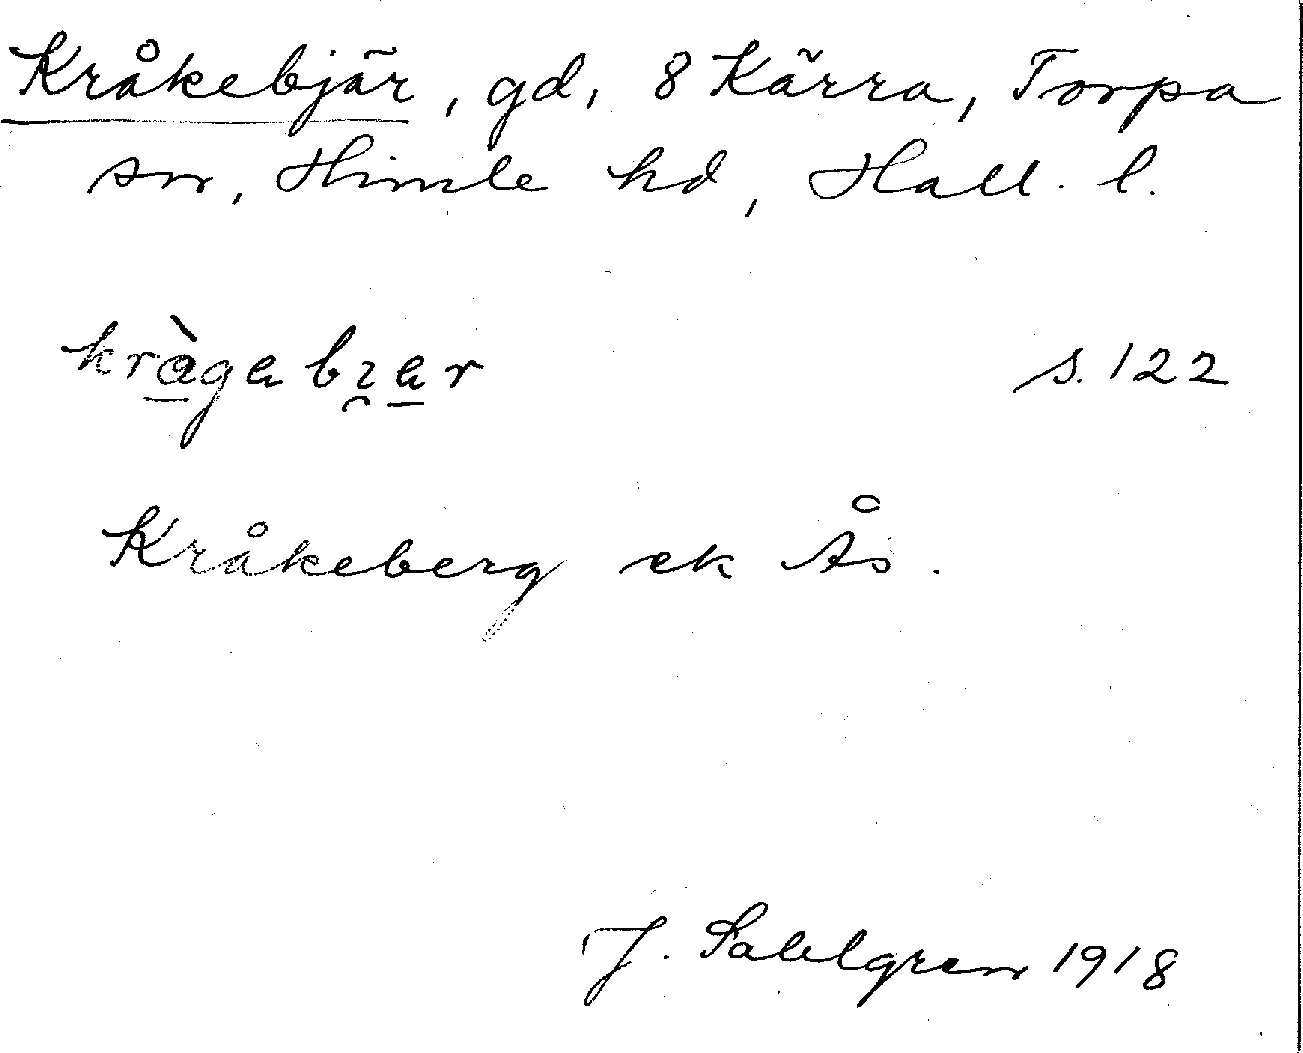 Kråkebjär, gd, 8 Kärra, Torpa
sn, Himle hd, Hall. l.
kràgabɿar s. 122
Kråkeberg ek Ås.
J. Sahlgren 1918